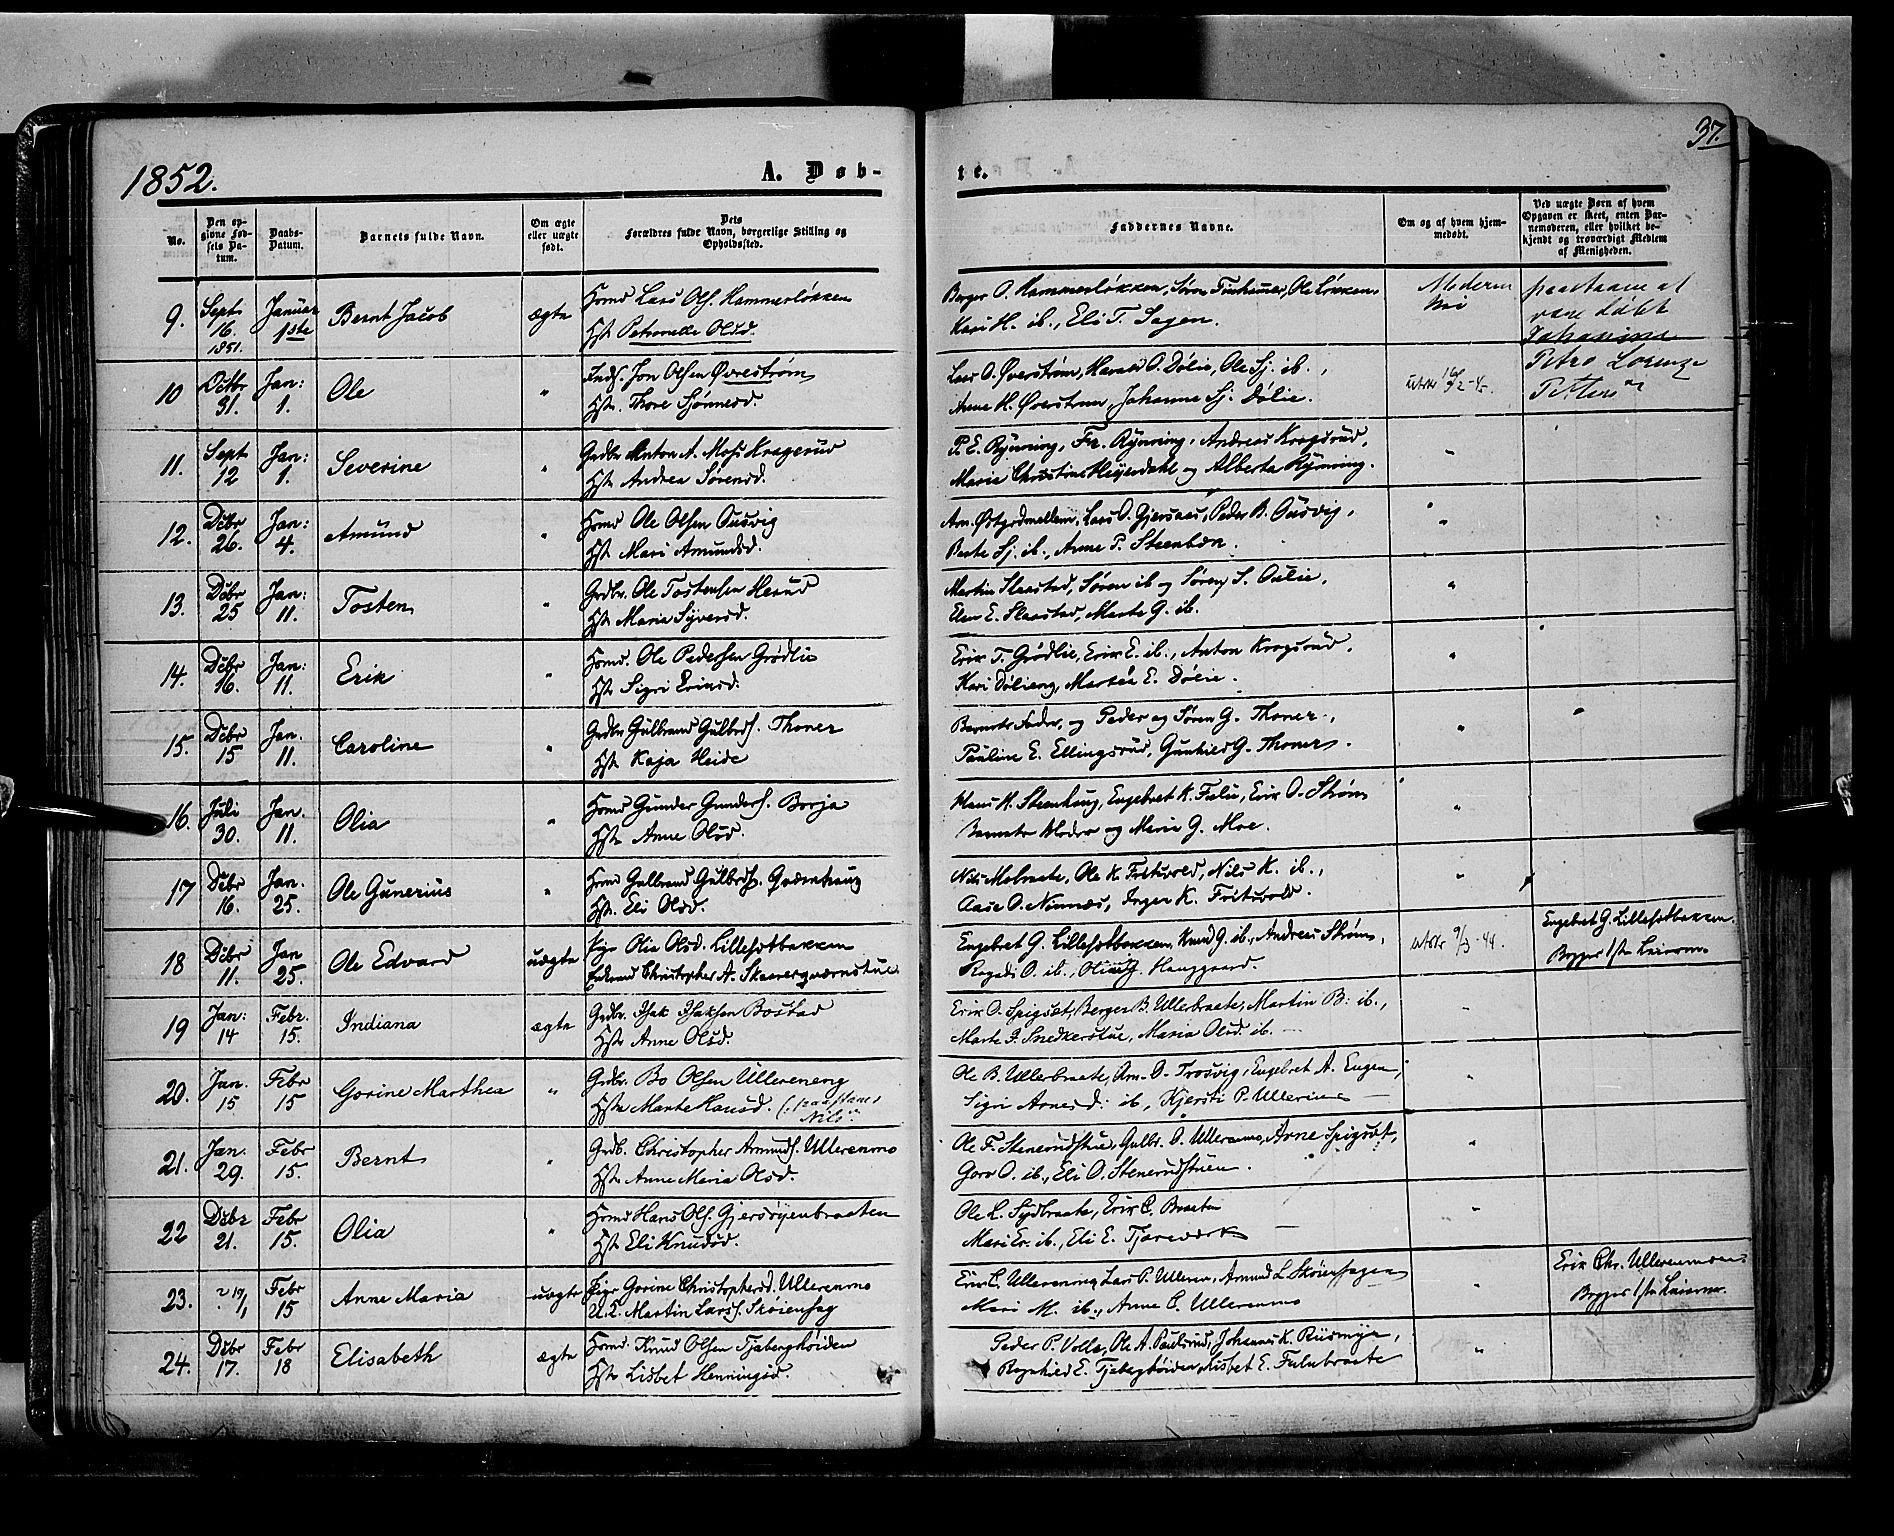 1852.
A. Døb-
te.
37.
No.
Den op-
givne Fød-
sels Da-
tum.
Daabs-
Datum.
Barnets fulde Navn.
Om ægte
eller uægte
født.
Dets
Forældres fulde Navn, borgerlige Stilling og
Opholdssted.
Faddernes Navne.
Om og af hvem hjem-
medøbt.
Ved uægte Børn af hvem
Opgaven er skeet, enten Bar-
nemoderen, eller hvilket be-
kjendt og troværdigt Medlem
af Menigheden.
9.
Sept
16.
1851.
Januar
1ste
Bernt Jacob
ægte
Hsmd Lars Ols. Hammerløkken
Hst. Petronelle Olsd.
Berger O. Hammerløkken, Søren, Ole Løkken
Kari H. ib., Eli T. Sagen.
paastaaes at
være døbt
Johannes
Petro Lorenz
10
Decbr
31.
Jan:
1.
Ole
"
Inds. Jon Olsen Øvrestrøm
Hst. Thore Sjønnesd.
Lars O. Øverstrøm, Harald O. Dølie, Ole Sj. ib.,
Anne H. Øverstrøm, Johanne Sj. Dølie.
11.
Sept
12
Jan:
1.
Severine
"
Grdbr Anton A. Moss Kragerud
Hst. Andrea Sørensd.
P. E. Rynning, Fr. Rynning, Andreas Krogsrud,
Marie Christine Heyerdahl og Alberta Rynning.
"
12.
Dcbr
26.
Jan:
4.
Amund
"
Hsmd Ole Olsen Ousvig
Hst. Mari Amundsd.
Arn Østgordmellem, Lars O. Gjersaas, Peder B. Ousvig,
Berte Sj. ib., Anne P. Steenbæn.
"
13.
Dcbr
25
Jan:
11.
Tosten
"
Grdbr. Ole Tostensen Herud
Hst. Maria Syversd.
Martin Slaastad, Søren ib og Søren S. Oulie,
Elen E. Slaastad, Marte G. ib.
"
14.
Dcbr
16.
Jan:
11.
Erik
"
Hsmd. Ole Pedersen Grødlie
Hst. Sigri Eriksd.
Erik T. Grødlie, Erik E. ib., Anton Krogsrud,
Kari Dølieng, Martea E. Dølie.
"
15.
Dcbr
15
Jan.
11.
Caroline
"
Grdbr Gulbrand Gulbrds. Thoner
Hst. Kaja Heide
Barnets Fader, og Peder og Søren G. Thoner,
Pauline E. Ellingsrud, Gunhild G. Thoner.
"
16.
Juli
30.
Jan.
11.
Olia
"
Hsmd Gunder Gunders. Borja
Hst. Anne Olsd.
Hans K. Steenhaug, Engebret K. Fulu, Erik O. Strøm
Barnets Moder og Marie G. Moe.
"
17
Dcbr
16.
Jan.
25.
Ole Gunerius
"
Hsmd Gulbrand Gulbrds. Qværnhaug
Hst. Eli Olsd.
Nils Mobraate, Ole K. Fritsvold, Nils K. ib.,
Aase O. Nimnæs, Inger K. Fritsvold.
"
18
Dcbr
11.
Jan
25.
Ole Edvard
uægte
Pige Olia Olsd. Lillesætbakken
Enkemd Christopher A. Skaarerqværnstue
Engebret G. Lillesætbakken, Knud G. ib., Andreas Strøm,
Ragndi O. ib., Olia G. Hauggaard.
utskr 9/3 - 44.
Engebret G. Lillesætbakken.
Begges 1ste Leiermaal
19
Jan:
14
Febr.
15.
Indiana
ægte
Grdbr. Isak Isaksen Bostad
Hst. Anne Olsd.
Erik O. Spigset, Berger B. Ullerbraate, Martin B. ib.,
Marte J. Snedkerstue, Maria Olsd. ib.
"
20.
Jan.
15
Febr
15
Gorine Marthea
"
Grdbr. Bo Olsen Ullereneng
Hst. Marte Hansd. (paastaaes
Nils
Ole B. Ullerbraate, Arn. O. Trosvig, Engebret A. Eugen,
Sigri Arnesd. ib, Kjersti P. Ulleren
"
21.
Jan.
29.
Febr
15.
Bernt
"
Grdb. Christopher Amunds. Ullerenmo
Hst. Anne Maria Olsd.
Ole F. Stenerudstue, Gulbr. O. Ullerenmo, Arne Spigset,
Goro O. ib., Eli O. Stenerudstuen.
"
22
Dcbr
21.
Febr
15.
Olia
"
Hsmd Hans Ols. Gjersøyenbraaten
Hst. Eli Knudsd.
Ole L. Sydbraate, Erik C. Braaten
Mari Er. ib., Eli E. Tjæreværk
"
23.
17/1
Febr
15
Anne Maria
uægte
Pige Gorine Christophersd. Ullerenmo
U.K. Martin Lars. Skøienhag
Erik C. Ullereneng, Lars P. Ulleren, Amund L. Skøienhagen
Mari M. ib., Anne C. Ullerenmo
"
Erik Chr. Ullerenmoen
Begges 1ste Leierm.
24.
Dcbr
17.
Febr
18
Elisabeth
ægte
Hsmd. Knud Olsen Tjaberghøiden
Hst. Lisbet Henningsd.
Peder P. Volla, Ole A. Paulsrud, Johannes K. Riismyr,
Ragnhild E. Tjaberghøiden, Lisbet E. Fulubraate
"